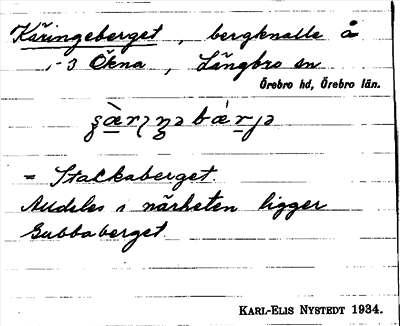 Käringeberget, bergknalle å
1-3 Ökna, Längbro sn
Örebro hd, Örebro län.
= Stackaberget.
Alldeles i närheten ligger
Gubbaberget
KARL-ELIS NYSTEDT 1934.